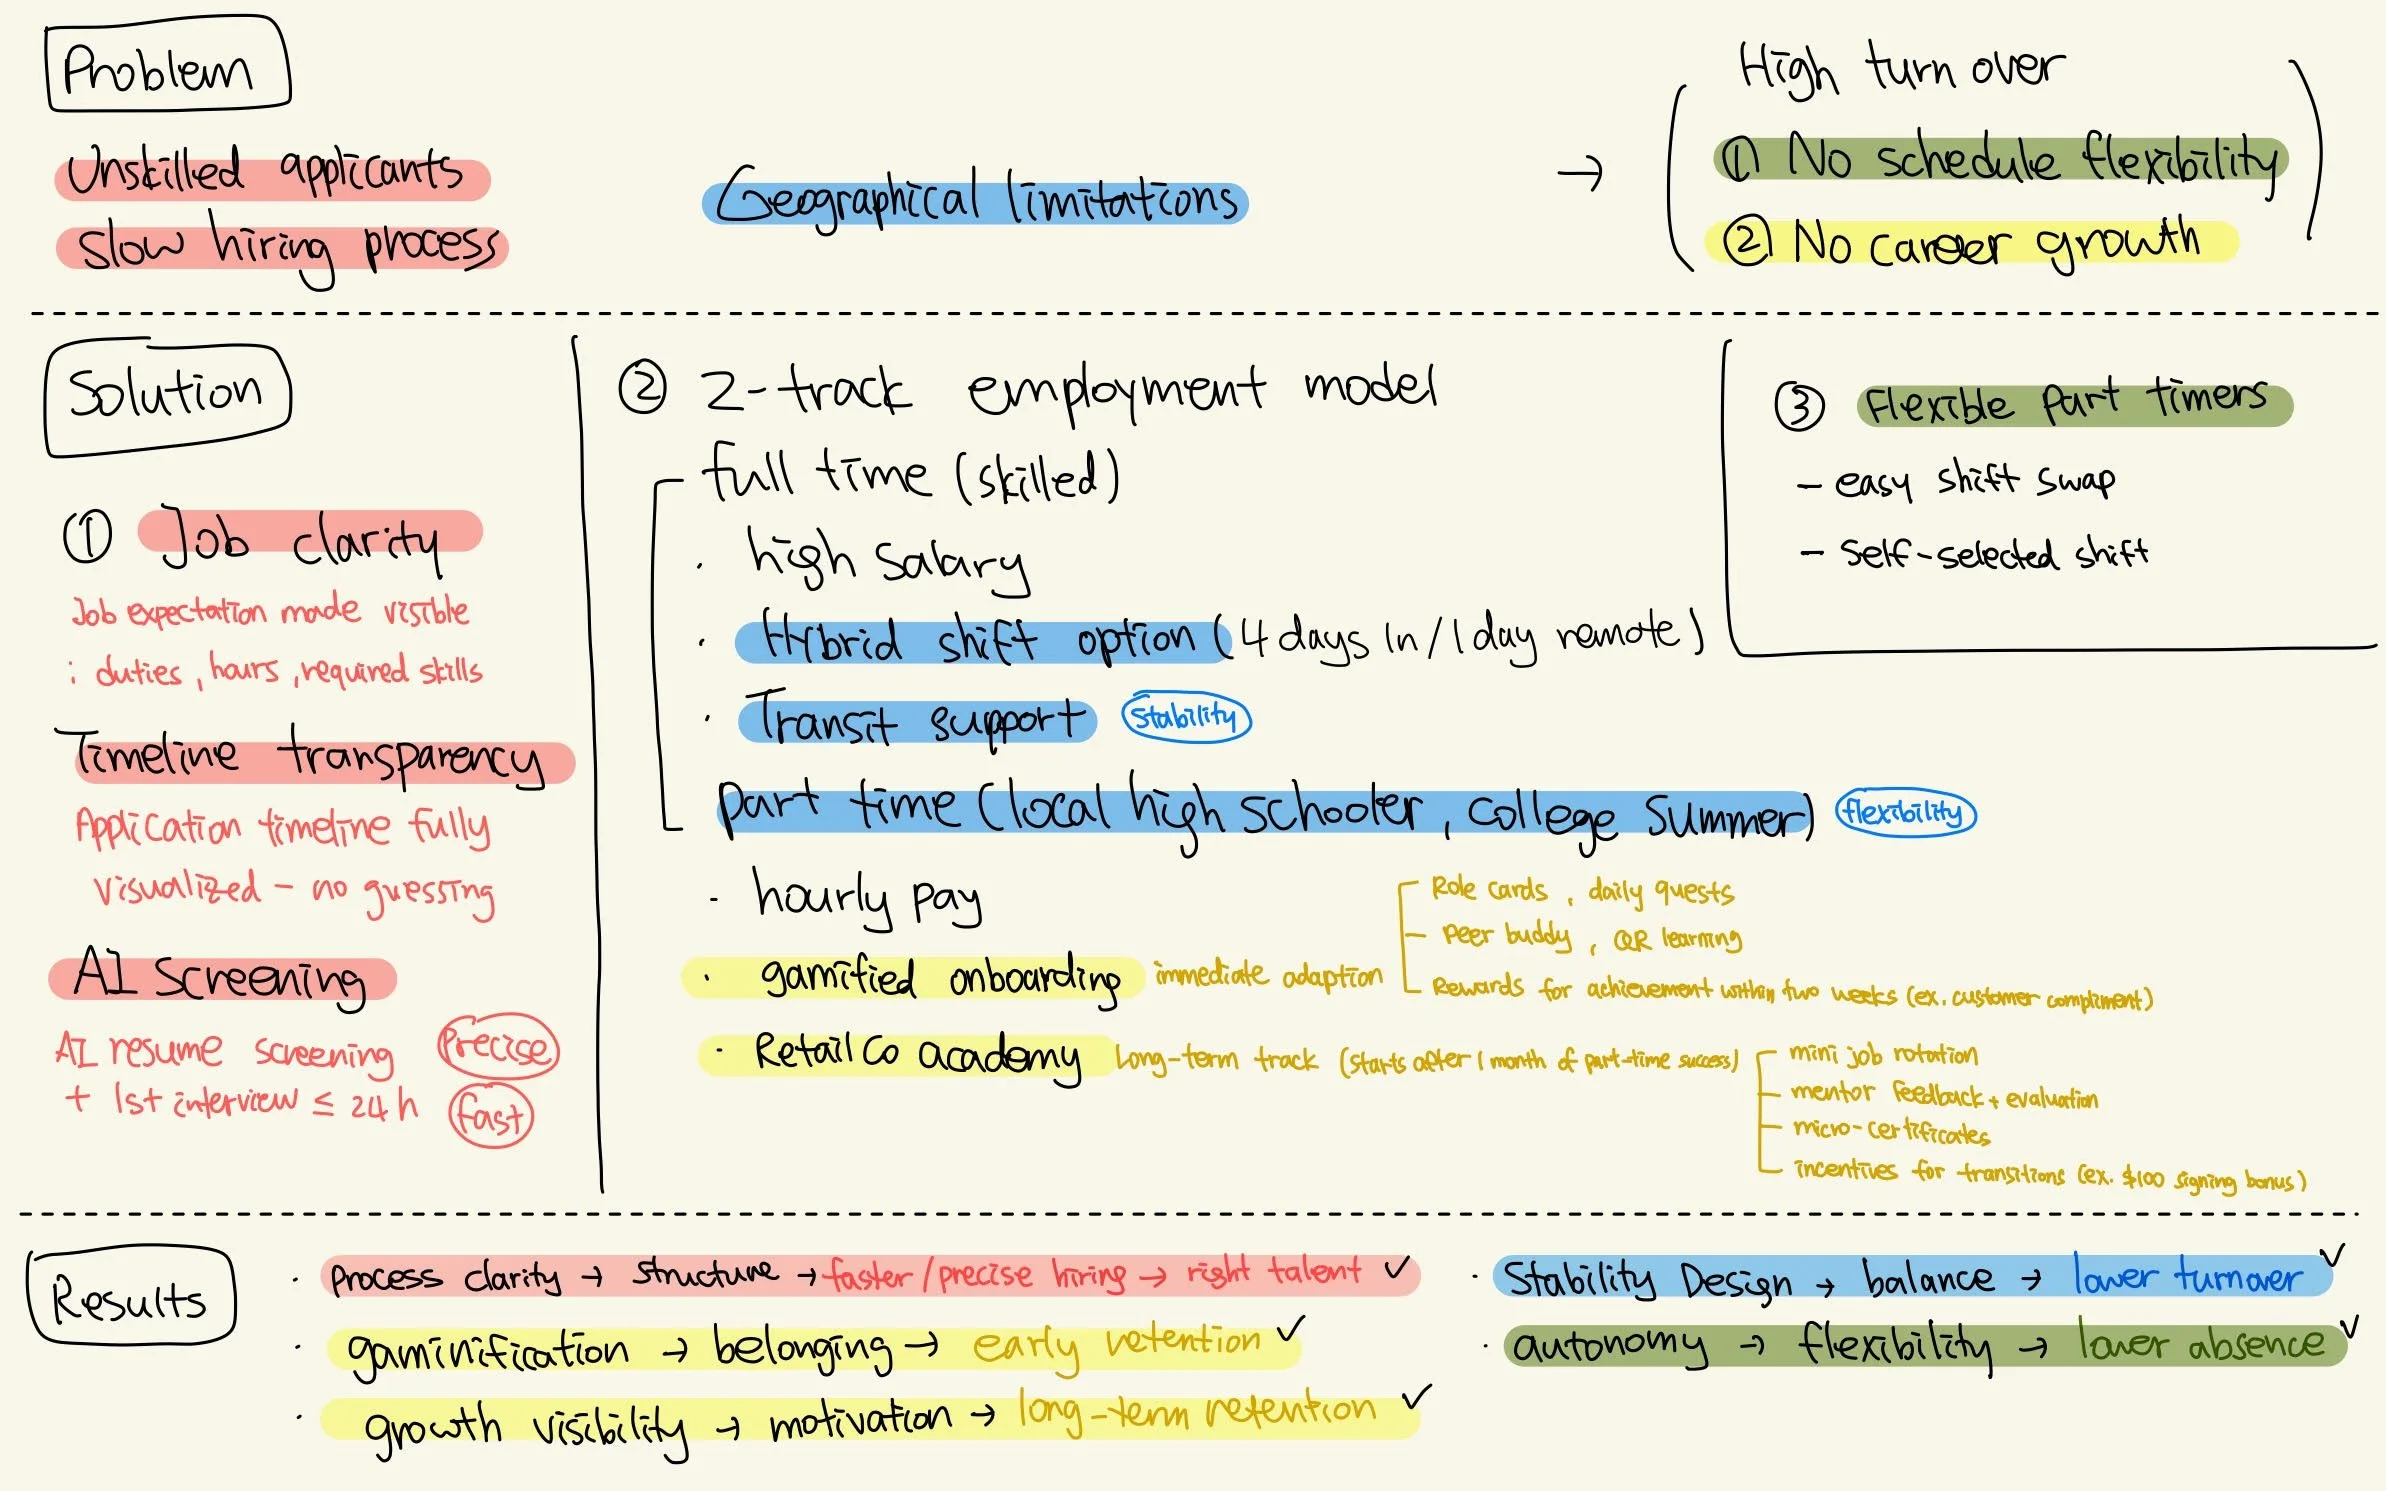 Problem
Unskilled applicants
Slow hiring process
Geographical limitations
→
High turn over
① No schedule flexibility
② No career growth
Solution
① Job clarity
Job expectation made visible
: duties, hours, required skills
Timeline transparency
Application timeline fully
visualized - no guessing
AI screening
AI resume screening
+ 1st interview ≤ 24h
Precise
fast
② 2-track employment model
full time (skilled)
· high salary
· Hybrid shift option (4 days in / 1 day remote)
· Transit support
Stability
part time (local high schooler, college summer)
flexibility
· hourly pay
· gamified onboarding immediate adaption
Role cards, daily quests
peer buddy, QR learning
Rewards for achievement within two weeks (ex. customer compliment)
· RetailCo academy Long-term track (starts after 1 month of part-time success)
mini job rotation
mentor feedback + evaluation
micro-certificates
incentives for transitions (ex. $100 signing bonus)
③ Flexible part timers
- easy shift swap
- self-selected shift
Results
· process clarity → structure → faster/precise hiring → right talent ✓
· gaminification → belonging → early retention ✓
· growth visibility → motivation → long-term retention ✓
· Stability Design → balance → lower turnover ✓
· autonomy → flexibility → lower absence ✓